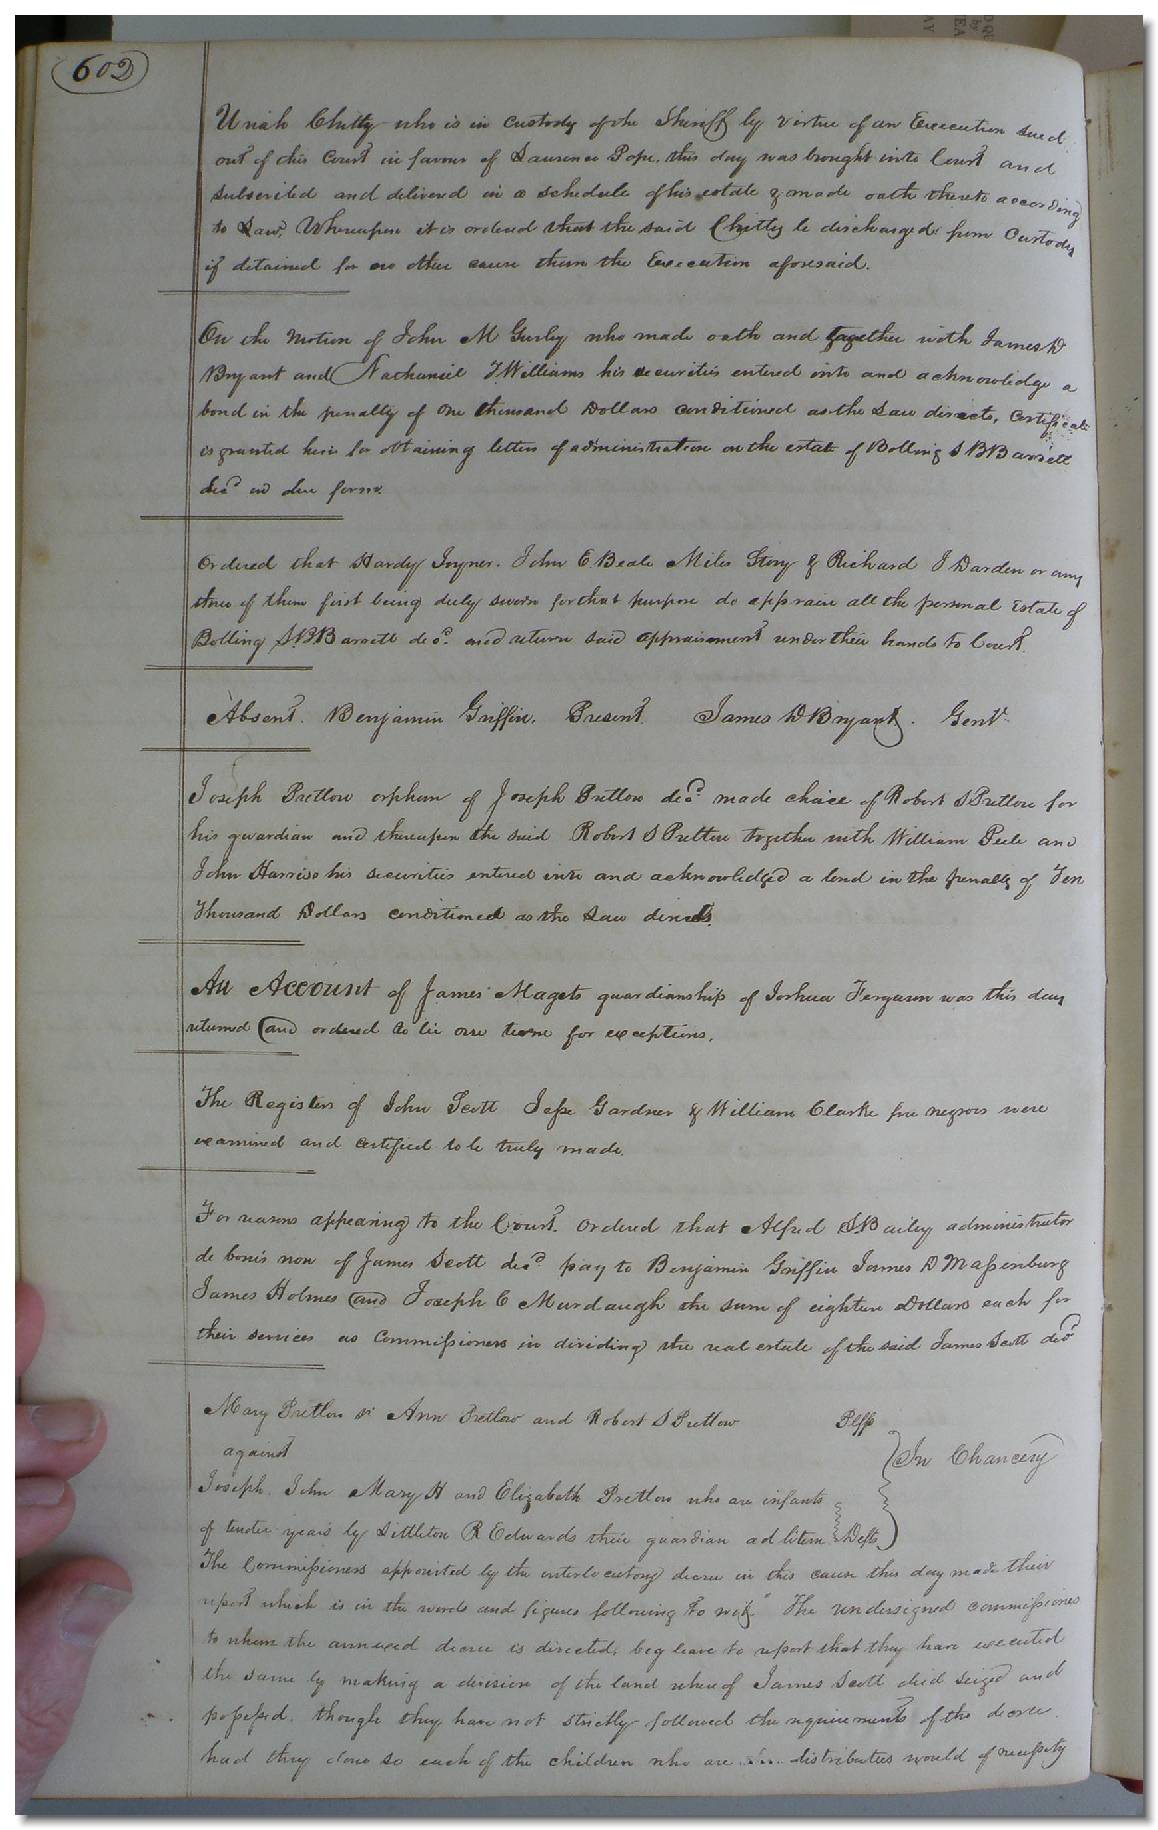 602
Uriah Chitty who is in custody of the Sheriff by virtue of an Execution sued
out of this Court in favour of Laurence Pope. this day was brought into Court and
subscribed and delivered in a schedule of his estate & made oath thereto according
to Law, Whereupon it is ordered that the said Chitty be discharged from Custody
if detained for no other cause than the Execution aforesaid.
On the motion of John M Gurley who made oath and together with James D
Bryant and Nathaniel T Williams his securities entered into and acknowledge a
bond in the penalty of One thousand Dollars conditioned as the Law directs, Certificate
is granted him for obtaining letters of administration on the estate of Bolling S B Barrett
decd in due form.
Ordered that Hardy Joyner. John E Beale Miles Story & Richard J Darden or any
three of them first being duly sworn for that purpose do appraise all the personal Estate of
Bolling S.B Barrett decd. and return said appraisement under their hands to Court.
Absent. Benjamin Griffin. Present. James D Bryant. Gent
Joseph Pretlow orphan of Joseph Pretlow decd. made choice of Robert S Pretlow for
his guardian and thereupon the said Robert S Pretlow together with William Peele and
John Harris his securities entered into and acknowledged a bond in the penalty of Ten
Thousand Dollars conditioned as the Law directs.
An Account of James Magets guardianship of Joshua Ferguson was this day
returned and ordered to lie one term for exceptions.
The Registers of John Scott Jesse Gardner & William Clarke free negroes were
examined and certified to be truly made.
For reasons appearing to the Court. Ordered that Alfred S Bailey administrator
de bonis non of James Scott decd pay to Benjamin Griffin James D Massenburg
James Holmes and Joseph C Murdaugh the sum of eighteen Dollars each for
their services as Commissioners in dividing the real estate of the said James Scott decd
Mary Pretlow sr Ann Pretlow and Robert S Pretlow Plffs
against
In Chancery
Joseph. John Mary H and Elizabeth Pretlow who are infants
of tender years by Littleton R Edwards their guardian ad litem Defts
The Commissioners appointed by the interlocutory decree in this cause this day made their
report which is in the words and figures following to wit, "The undersigned commissioners
to whom the annexed decree is directed, beg leave to report that they have executed
the same by making a division of the land whereof James Scott died seized and
possessed. though they have not strictly followed the requirements of the decree.
had they done so each of the children who are distributees would of necessity